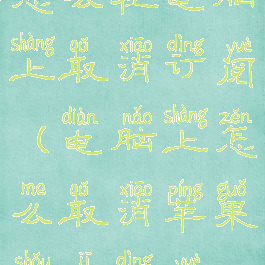 shàng qǔ xiāo dìng yuè
上取消订阅
diàn nǎo shàng zěn
（电脑上怎
me qǔ xiāo píng guǒ
么取消苹果
shǒu jī dìng yuè